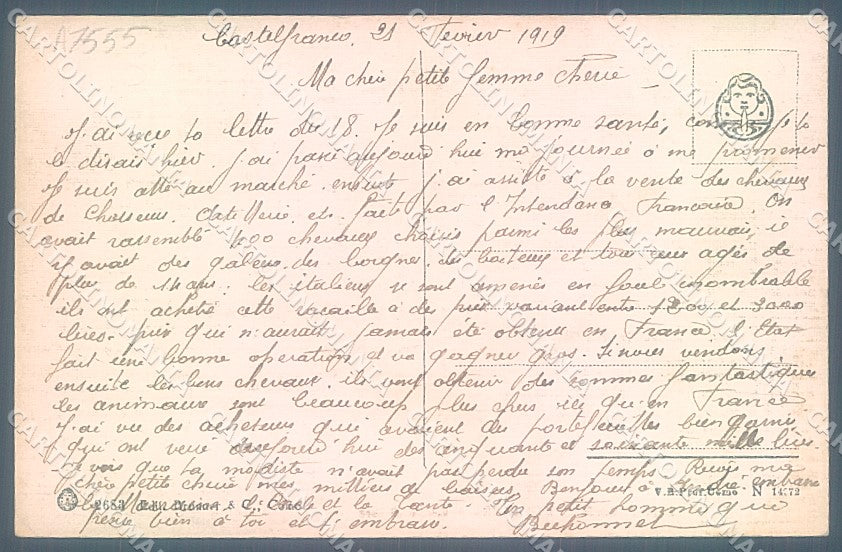 A7555
Castelfranco, 21 Fevrier 1919
Ma chère petite femme cherie
J'ai reçu ta lettre du 18. Je suis en bonne santé, je te
le disais hier. J'ai passé aujourd'hui ma journée à me promener
Je suis allé au marché ensuite j'ai assisté à la vente des chevaux
de Chasseurs. Artillerie etc faite par l'Intendance Française. On
avait rassemblé 400 chevaux choisis parmi les plus mauvais, il
y avait des galeux, des borgnes des boiteux et tous agés de
plus de 14 ans. Les italiens se sont amenés en foule innombrable
ils ont acheté cette racaille à des prix variant entre 1200 et 3000
lires. prix qui n'aurait jamais été obtenu en France l'Etat
fait une bonne operation et va gagner gros. Si nous vendons
ensuite les bons chevaux. ils vont obtenir des sommes fantastiques
les animaux sont beaucoup plus chers ici qu'en France
J'ai vu des acheteurs qui avaient des portefeuilles bien garnis
qui ont versé aujourd'hui des cinquante et soixante mille lires
Je vois que ta modiste n'avait pas perdu son temps. Reçois ma
chère petite cherie mes milliers de baisers. Bonjour à
et la tante. Ton petit homme qui
pense bien à toi et t'embrasse.
2653
V.B. Prof. Como N 14272
CARTOLINOMANIA